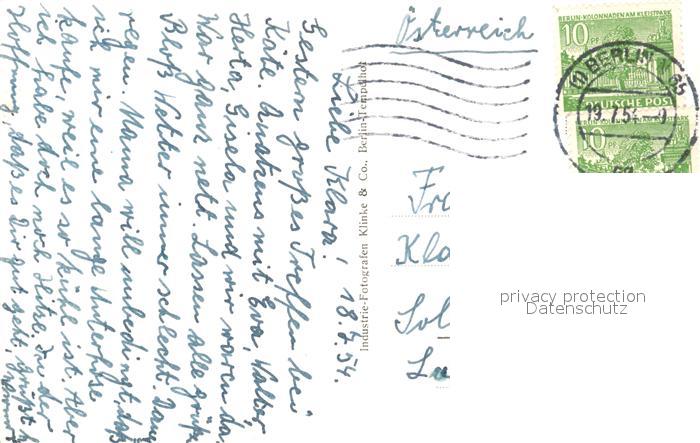 Liebe Klara! 18.7.54.
Gestern großes Treffen bei
Käte. Andreas mit Eva, Walter
Herta, Gisela und wir waren da.
War ganz nett. Lassen alle grüße
Bloß Wetter immer schlecht. Dau
regen. Mama will unbedingt, daß
ich mir eine lange Unterhose
kaufe, weil es so kühl ist. Aber
ich habe doch noch Hitze. In der
Hoffnung, daß es Dir gut geht, grüßt h
Industrie-Fotografen Klinke & Co., Berlin-Tempelhof
Österreich
BERLIN-KOLONNADEN AM KLEISTPARK
10 PF
DEUTSCHE POST
10 PF
(1) BERLIN
65
19.7.54
Fr
Kla
Sol
privacy protection
Datenschutz